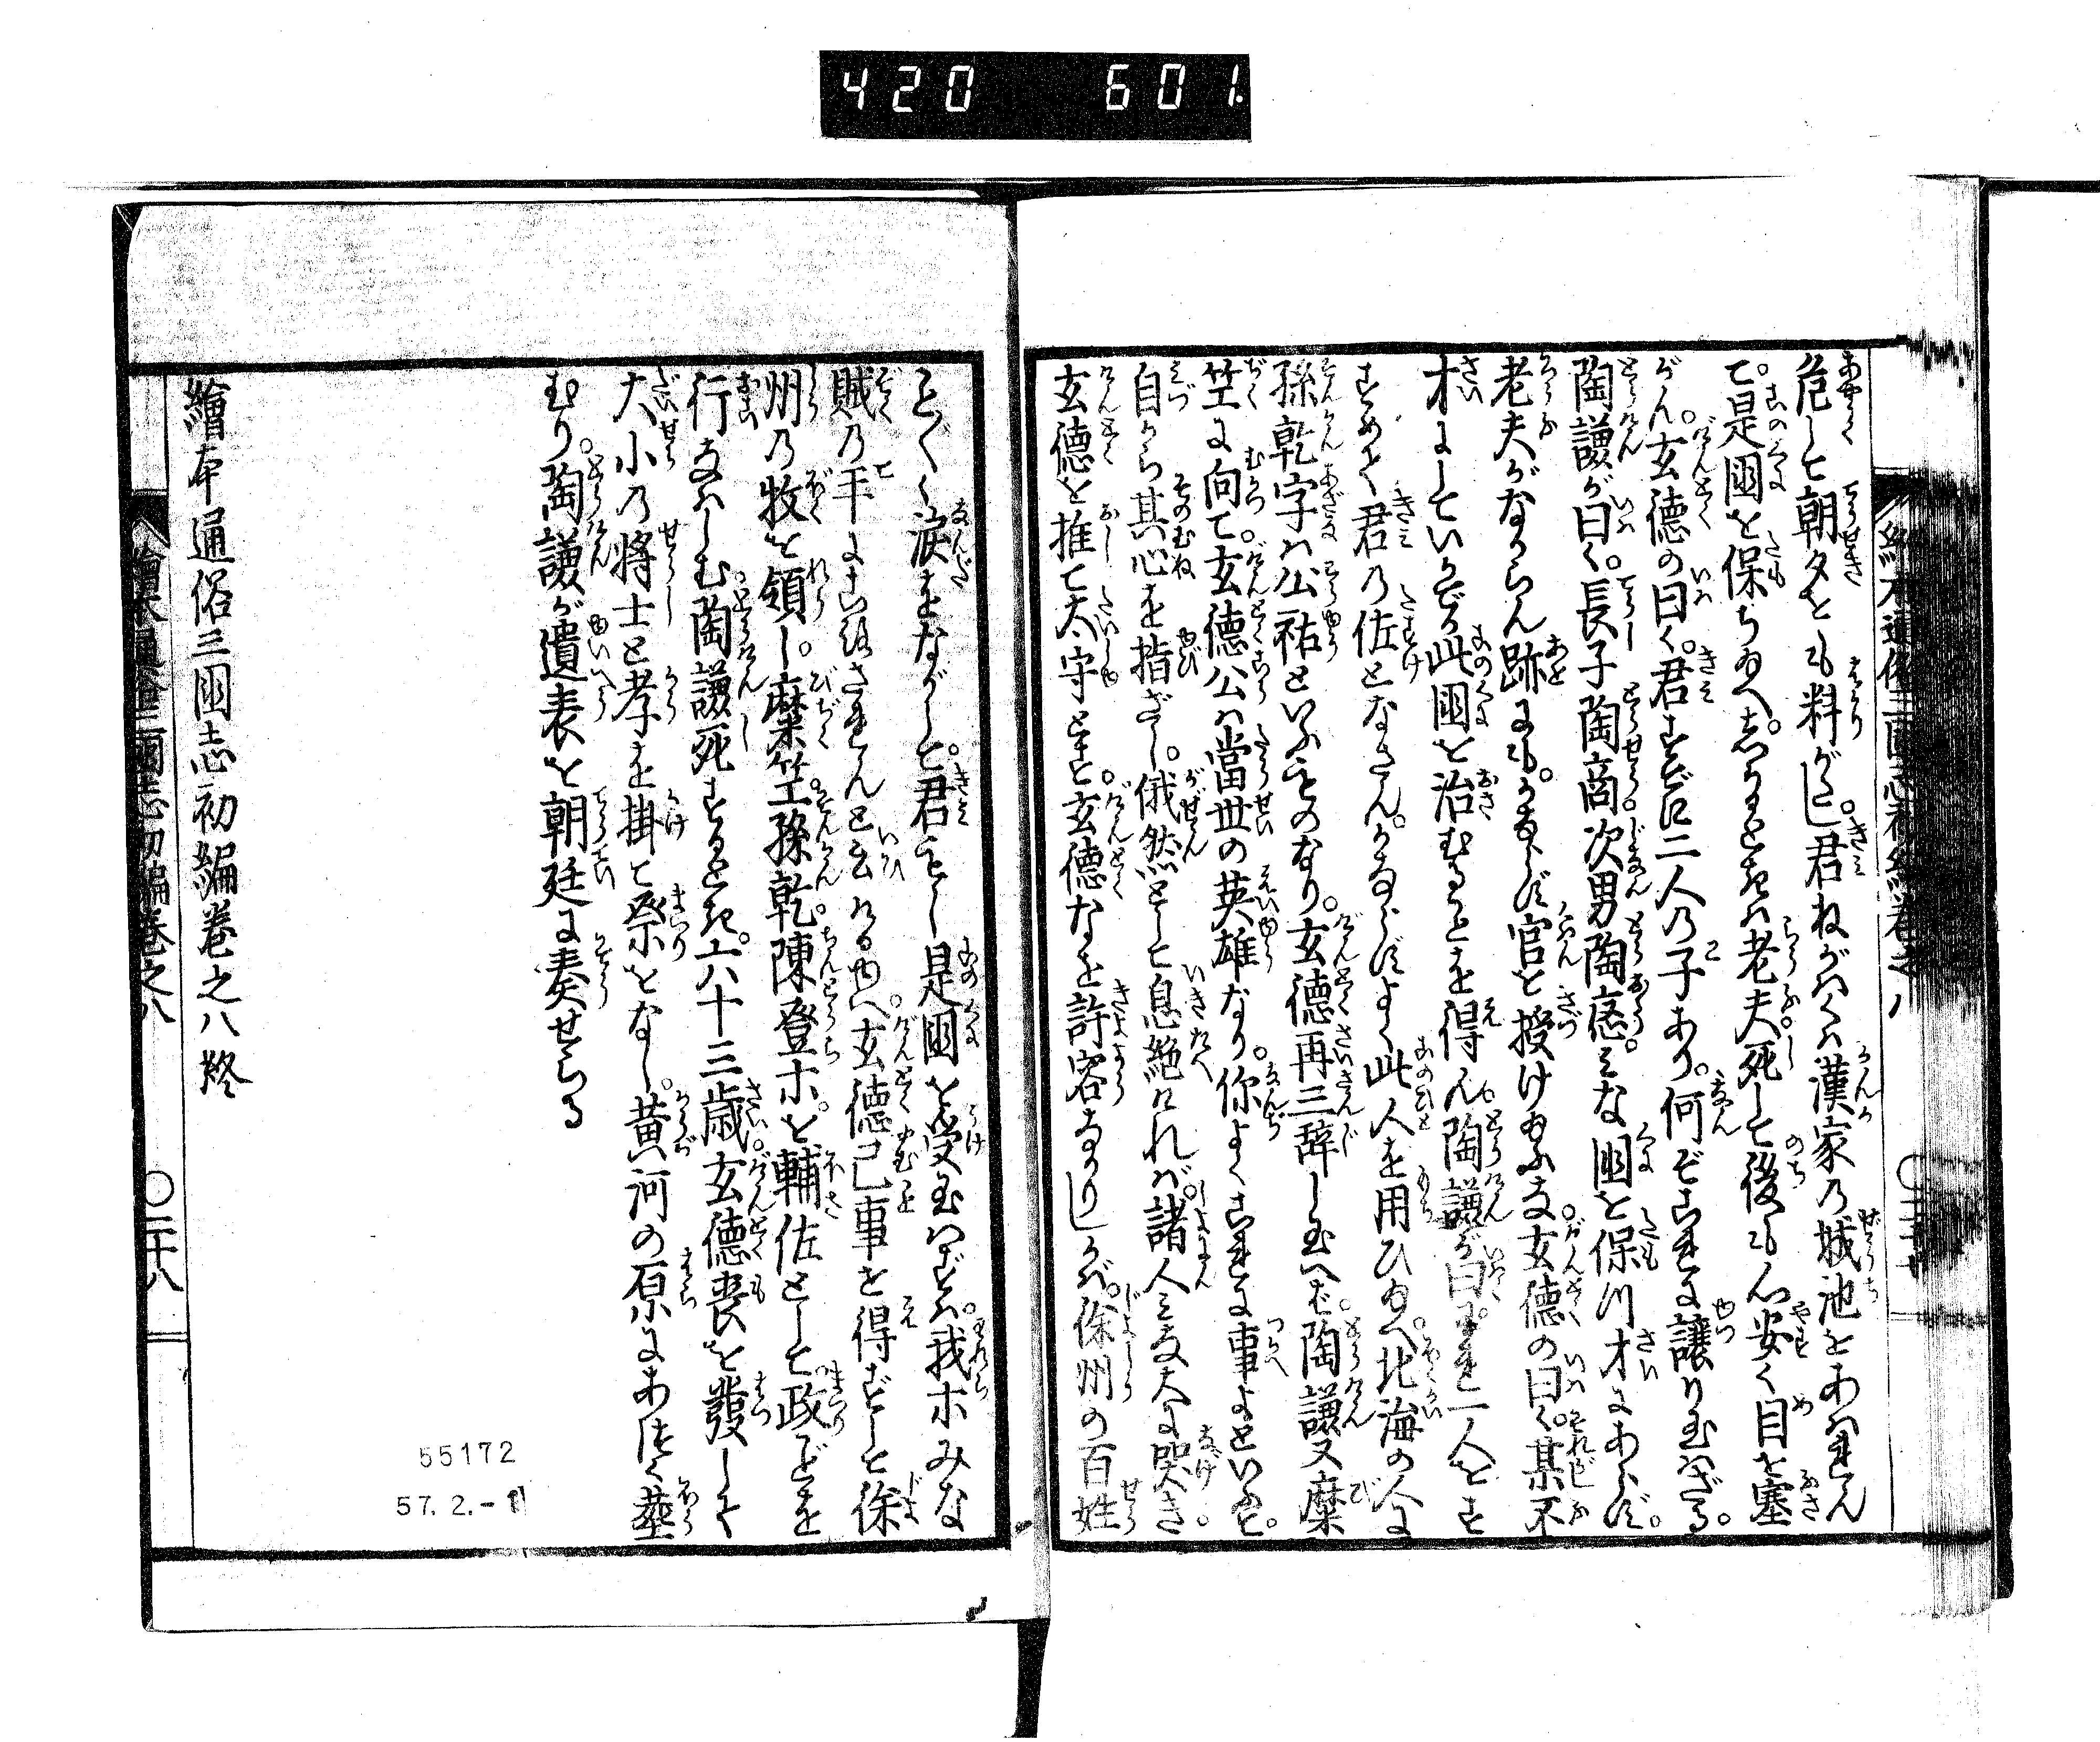 420 601.
危して朝夕とも料がたし君ねがハくハ漢家乃城池をあはれん
で是國を保ち給へしかるときハ老夫死して後も心安く目を塞
がん。玄徳の曰く。君すでに二人乃子あり。何ぞこれに讓り玉ハざる。
陶謙が曰く。長子陶商。次男陶應。みな國を保川才にあらず。
老夫がなからん跡にも。かならず官を授け給ふな玄徳の曰く。某不
才にしていかでか此國を治むることを得ん。陶謙が曰。われ一人をす
すめて君乃佐となさん。かならずよく此人を用ひ給へ北海の人に
孫乾字ハ公祐といふものなり。玄徳再三辞し玉へば。陶謙又糜
竺に向て。玄徳公ハ當世の英雄なり。你よくこれに事よといふて。
自から其心を指ざし。俄然として息絶けれバ。諸人みな大に哭き。
玄徳を推て太守とす。玄徳なを許容なかりしかバ。徐州の百姓
ことごとく涙をながして。君もし是國を受玉ハずんバ。我ホみな
賊乃手にころされんと云けるゆへ。玄徳已事を得ずして徐
州乃牧を領し。糜竺。孫乾。陳登ホを輔佐として。政ごとを
行なハしむ。陶謙死するとき。六十三歳。玄徳喪を發して
大小乃將士と孝を掛て祭をなし。黄河の原にあつく葬
むり。陶謙が遺表を朝廷に奏せらる
繪本通俗三國志初編巻之八終
繪本通俗三國志初編巻之八 〇二十八
55172
57.2.-